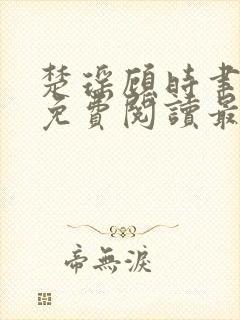 楚瑶顾时書
免費閱讀最
帝無淚